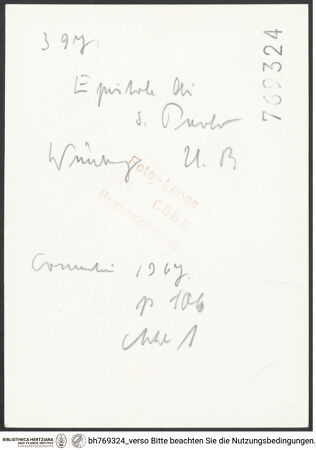 397
769324
Epistole di
S. Paolo
Würzburg U. B
Foto-Lange
C668
Braunschweig
1967.
p 106
BIBLIOTHECA HERTZIANA
MAX-PLANCK-INSTITUT
FÜR KUNSTGESCHICHTE
bh769324_verso Bitte beachten Sie die Nutzungsbedingungen.